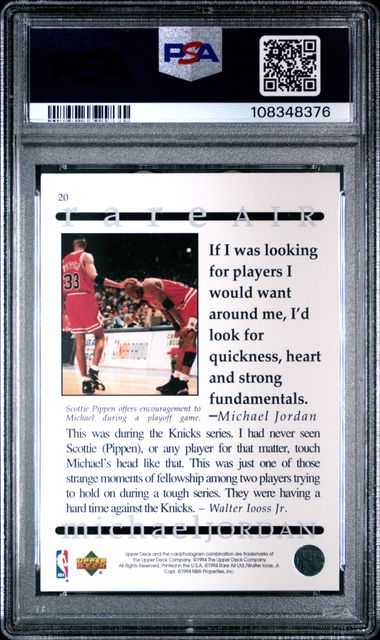 PSA
108348376
20
rare AIR
PIPPEN
33
NBA RADIO
If I was looking
for players I
would want
around me, I'd
look for
quickness, heart
and strong
fundamentals.
—Michael Jordan
Scottie Pippen offers encouragement to
Michael during a playoff game.
This was during the Knicks series. I had never seen
Scottie (Pippen), or any player for that matter, touch
Michael's head like that. This was just one of those
strange moments of fellowship among two players trying
to hold on during a tough series. They were having a
hard time against the Knicks. – Walter Iooss Jr.
michael JORDAN
NBA
UPPER DECK
Upper Deck and the card/hologram combination are trademarks of
The Upper Deck Company. ©1994 The Upper Deck Company.
All Rights Reserved. Printed in the U.S.A. ©1994 Rare Air Ltd./Walter Iooss, Jr.
Copr. ©1994 NBA Properties, Inc.